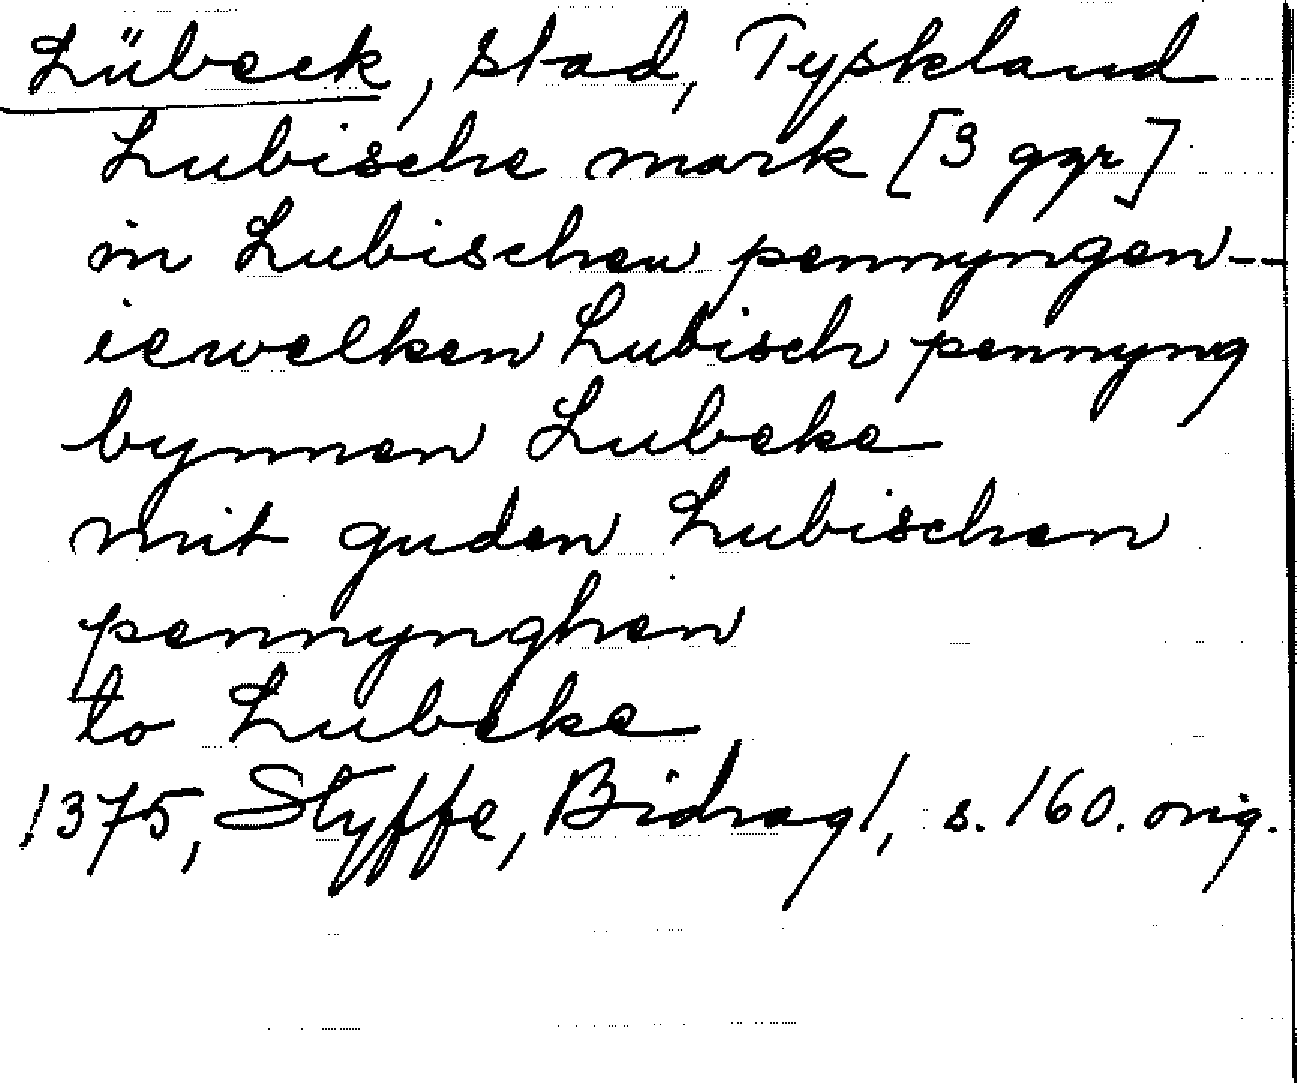 Lübeck, stad, Tyskland
Lubische mark [3 ggr]
in Lubischen pennyngen--
iewelken Lubisch pennyng
bynnen Lubeke
mit guden Lubischen
pennynghen
to Lubeke
1375, Styffe, Bidrag 1, s. 160. orig.